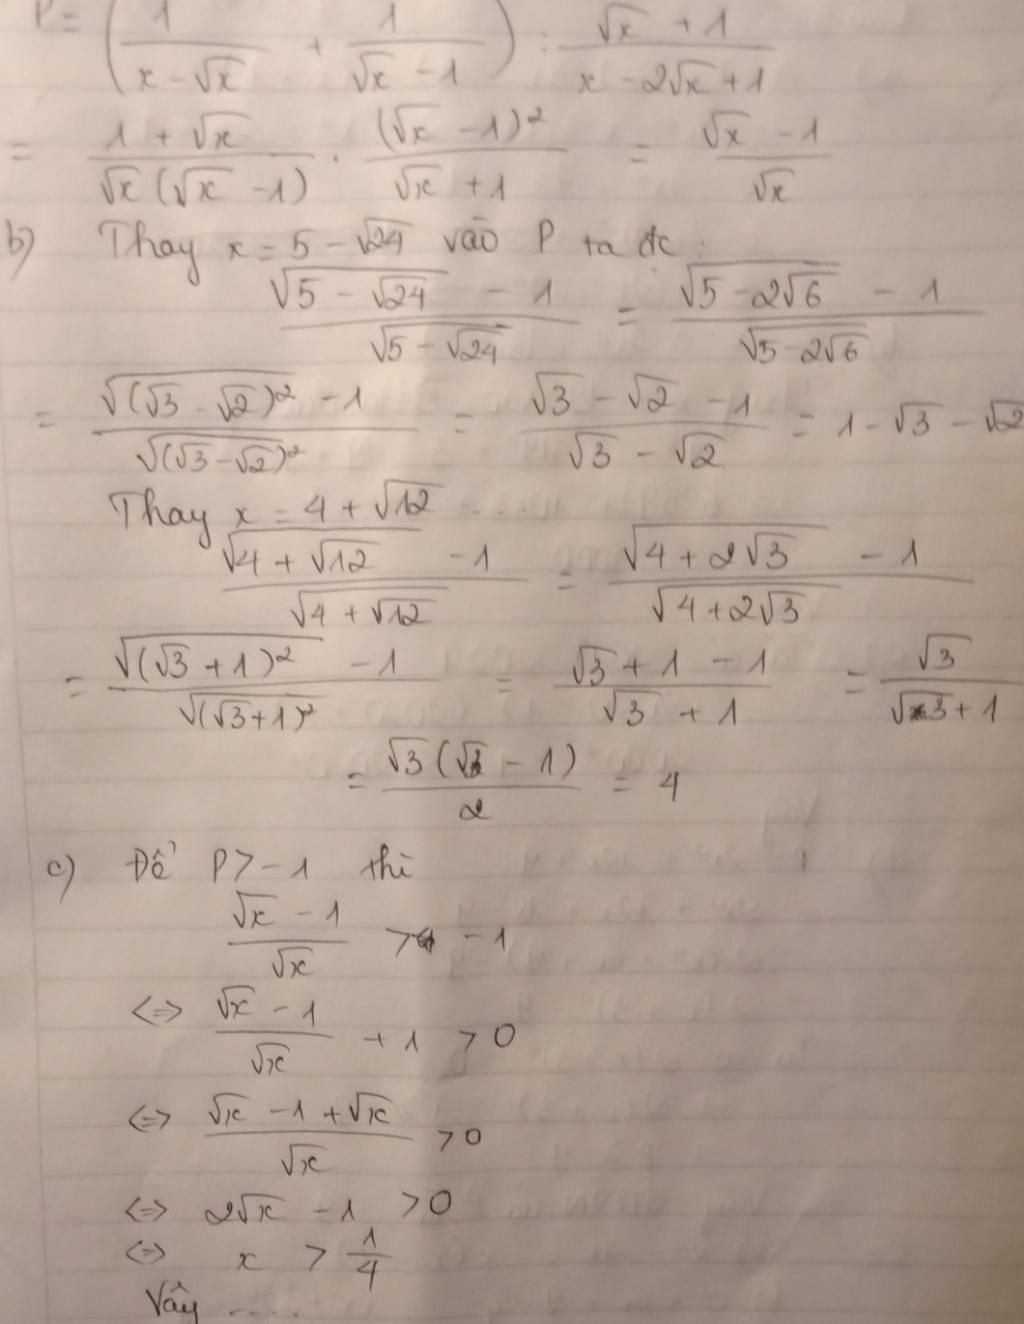 P = (1/(x - √x) + 1/(√x - 1)) : (√x + 1)/(x - 2√x + 1)
= (1 + √x)/(√x(√x - 1)) . (√x - 1)²/(√x + 1) = (√x - 1)/√x
b) Thay x = 5 - √24 vào P ta đc :
(√(5 - √24) - 1)/√(5 - √24) = (√(5 - 2√6) - 1)/√(5 - 2√6)
= (√((√3 - √2)²) - 1)/√((√3 - √2)²) = (√3 - √2 - 1)/(√3 - √2) = 1 - √3 - √2
Thay x = 4 + √12
(√(4 + √12) - 1)/√(4 + √12) = (√(4 + 2√3) - 1)/√(4 + 2√3)
= (√((√3 + 1)²) - 1)/√((√3 + 1)²) = (√3 + 1 - 1)/(√3 + 1) = √3/(√3 + 1)
= √3(√3 - 1)/2 = 4
c) Để P > -1 thì
(√x - 1)/√x > -1
<=> (√x - 1)/√x + 1 > 0
<=> (√x - 1 + √x)/√x > 0
<=> 2√x - 1 > 0
<=> x > 1/4
Vậy .....